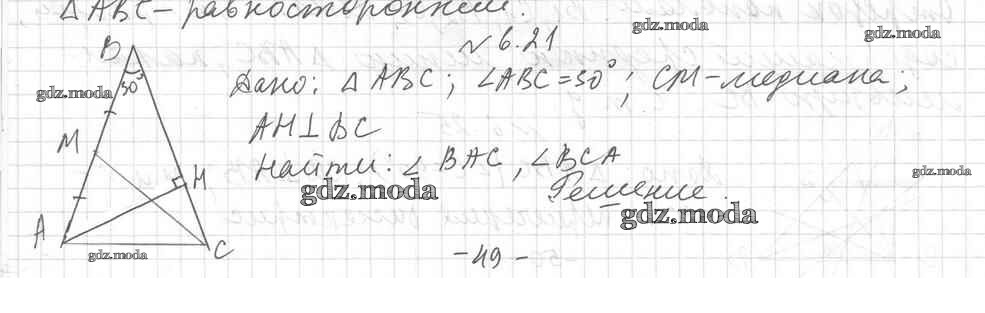 △ABC - равносторонний.
gdz.moda
gdz.moda
№ 6.21
B
30°
gdz.moda
Дано: △ABC; ∠ABC = 30°; CM - медиана;
AH ⊥ BC
M
Найти: ∠BAC, ∠BCA
gdz.moda
H
gdz.moda
Решение.
gdz.moda
A
C
gdz.moda
- 49 -